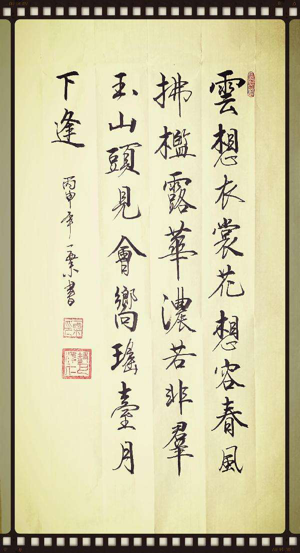 雲想衣裳花想容春風
拂檻露華濃若非羣
玉山頭見會嚮瑤臺月
下逢
丙申年一 書